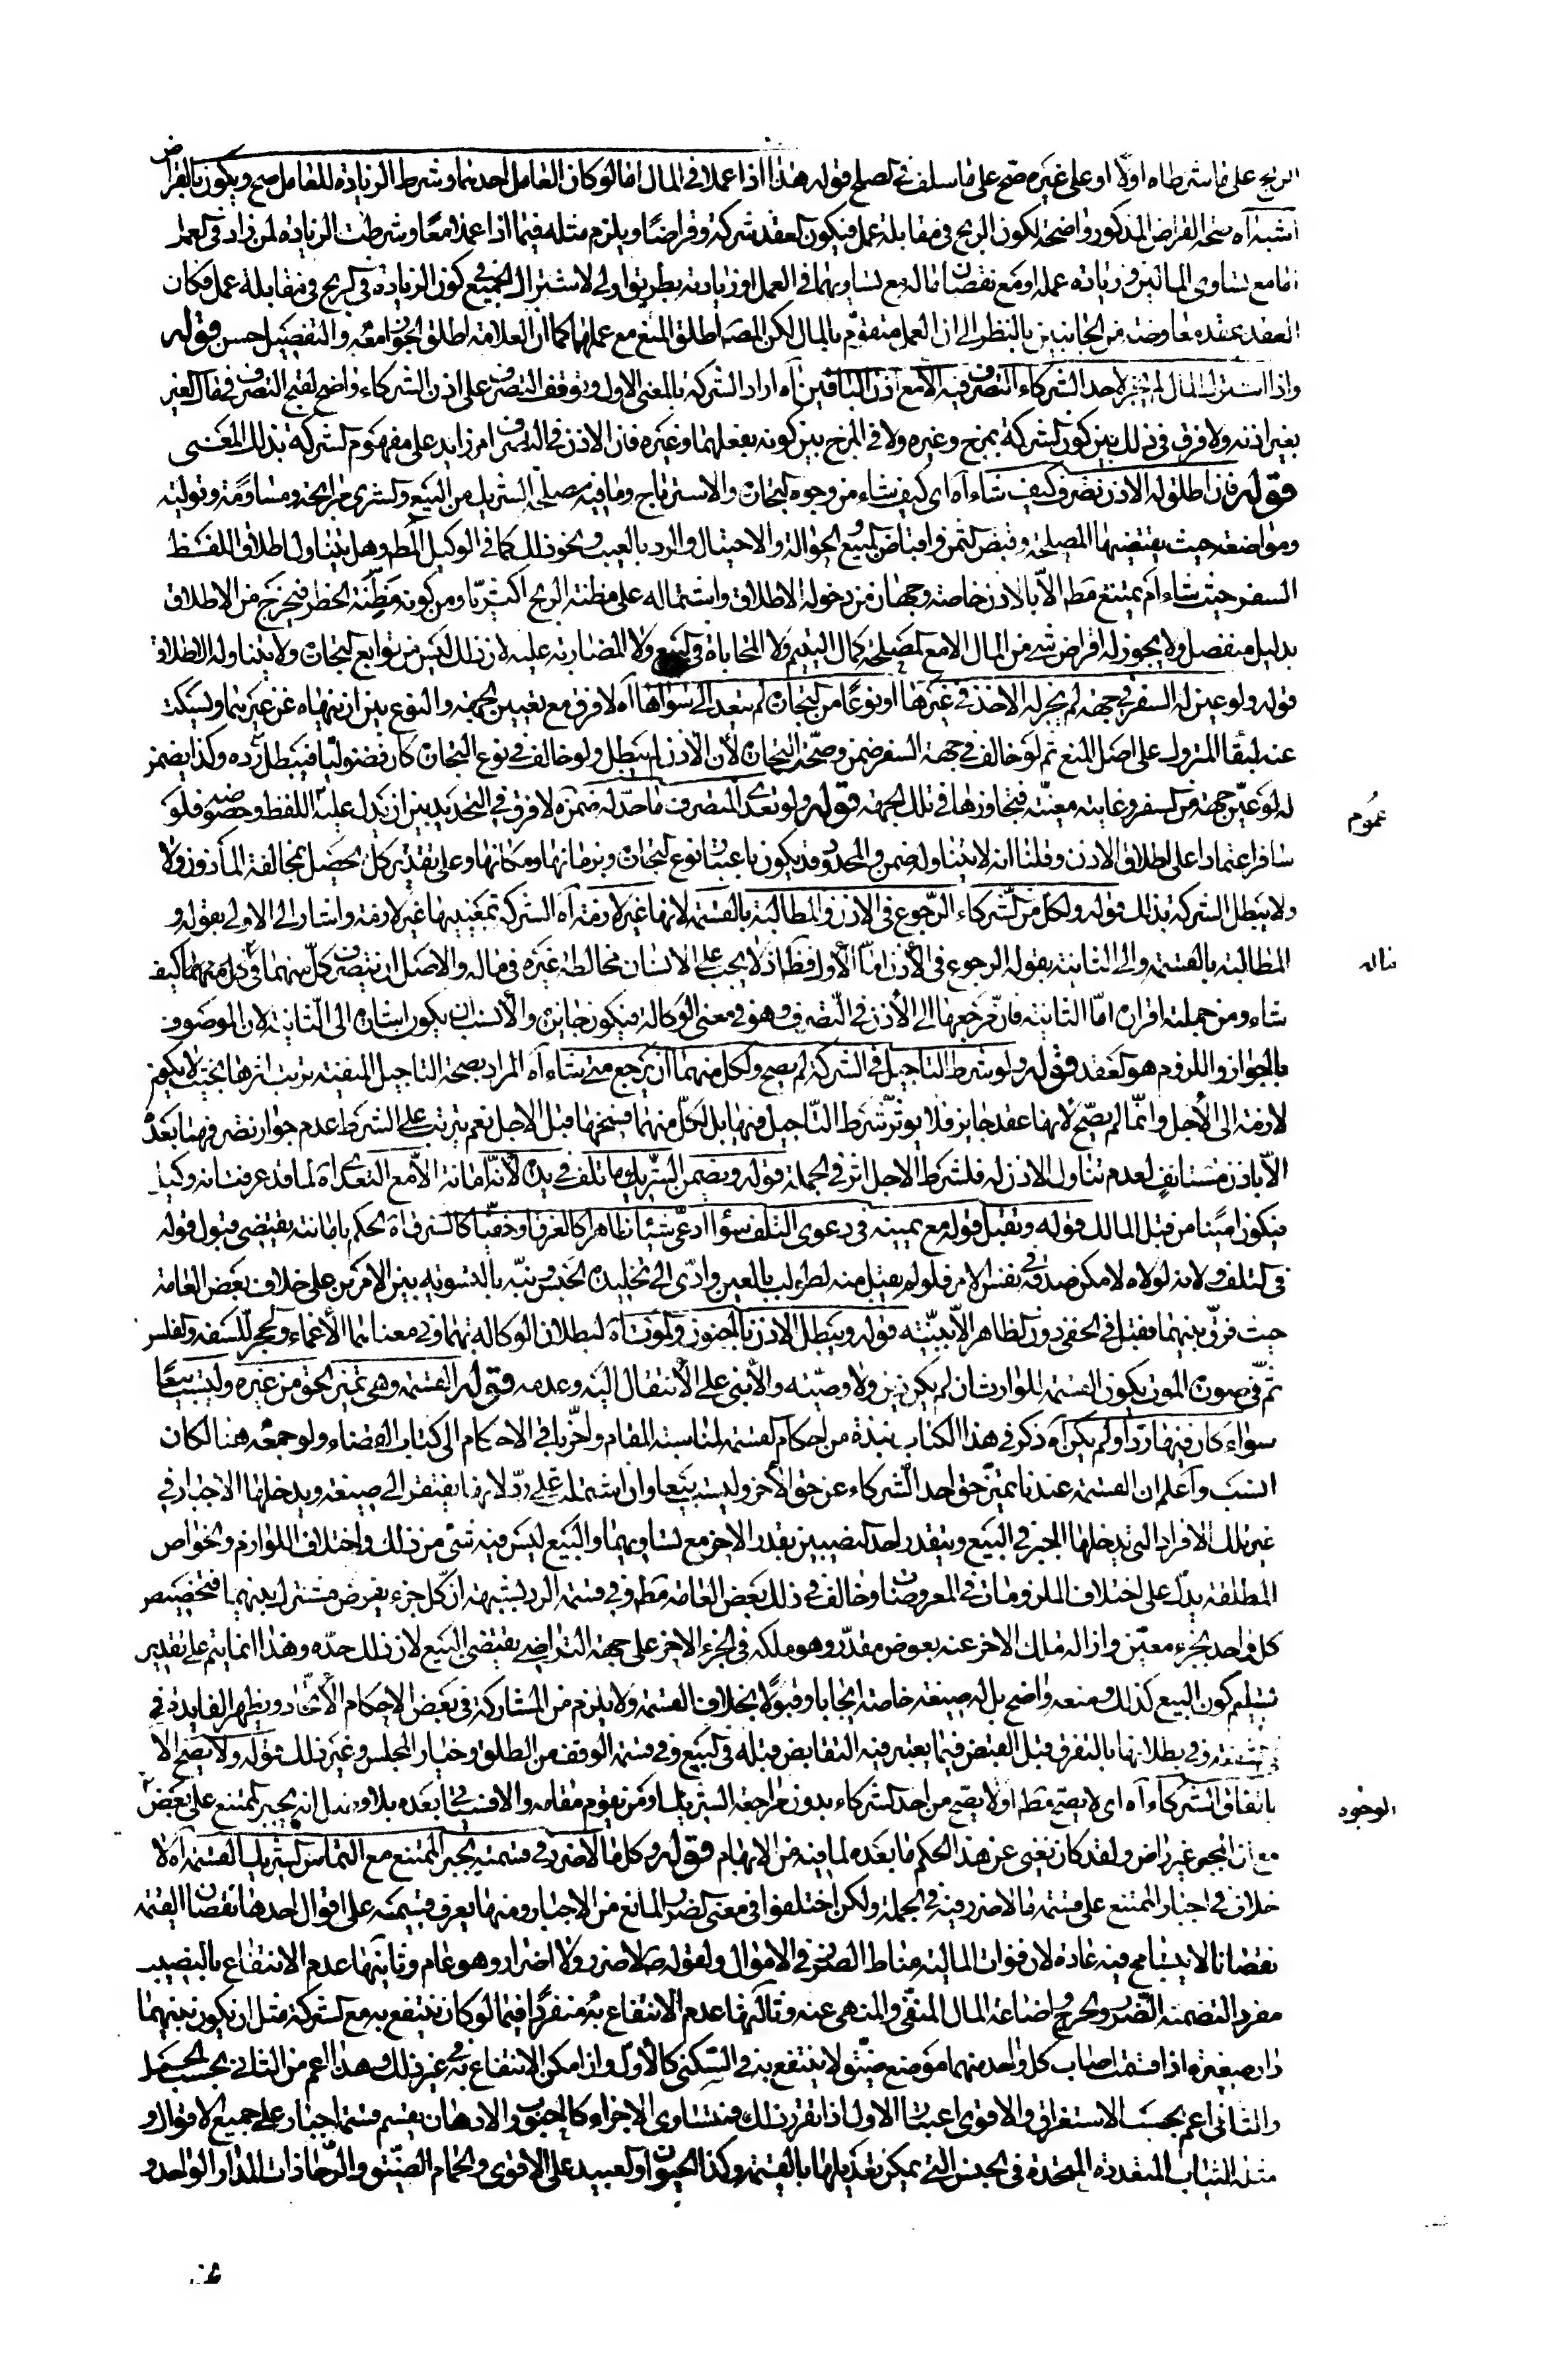 الربح على ما شرطاه اولا او على غيره صح على ما سلف في الصلح قوله هذا اذا عملا في المال اما لو كان العامل احدهما وشرط الزيادة للعامل صح ويكون بالقراض
اشبه آه صحة القراض المذكور واضحة لكون الربح في مقابلة عمل فيكون العقد شركة وقراضا ويلزم مثله فيما اذا عملا معا وشرطت الزيادة لمن زاد في العمل
اما مع تساوي المالين وزيادة عمله او مع نقصان ماله مع تساويهما في العمل او زيادته بطريق اولى لاشتراك الجميع في كون الزيادة في الربح في مقابلة عمل فكان
العقد بمنزلة معاوضة من الجانبين بالنظر الى ان العمل متقوم بالمال لكن المصـ اطلق المنع مع عملهما كما ان العلامة اطلق الجواز معه والتفصيل حسن قوله
واذا اشترك المال لم يجز لاحد الشركاء التصرف فيه الا مع اذن الباقين آه اراد الشركة بالمعنى الاول وتوقف التصرف على اذن الشركاء واضح لقبح التصرف في مال الغير
بغير اذنه ولا فرق في ذلك بين كون الشركة بمزج وغيره ولا في المزج بين كونه بفعلهما وغيره فان الاذن في التصرف امر زايد على مفهوم الشركة بذلك المعنى
قوله فان اطلق له الاذن تصرف كيف شاء آه اى كيف شاء من وجوه التجارة والاسترباح وما فيه مصلحة الشريك من البيع والشرى مرابحة ومساومة وتولية
ومواضعة حيث يقتضيها المصلحة وقبض الثمن واقباض المبيع والحوالة والاحتيال والرد بالعيب ونحو ذلك كما في الوكيل المطـ وهل يتناول اطلاق اللفظ
السفر حيث شاء ام يمتنع مطـ الا بالاذن خاصة وجهان من دخوله الاطلاق واشتماله على مظنة الربح اكثريا ومن كونه مظنة الخطر فيخرج من الاطلاق
بدليل منفصل ولا يجوز له اقراض شئ من المال الا مع المصلحة كمال اليتيم ولا المحاباة في البيع ولا المضاربة عليه لان ذلك ليس من توابع التجارة ولا يتناوله الاطلاق
قوله ولو عين له السفر في جهة لم يجز له الاخذ في غيرها او نوعا من التجارة لم يتعد الى سواها آه لا فرق مع تعيين الجهة والنوع بين ان ينهاه عن غيرهما ويسكت
عنه لبقاء المتروك على اصل المنع ثم لو خالف في جهة السفر ضمن وصحت التجارة لان الاذن لم يبطل ولو خالف في نوع التجارة كان فضوليا فيبطل برده وكذا يضمن
له لو عين جهة من السفر وغاية معينة فتجاوزها في تلك الجهة قوله ولو تعدى المتصرف ما حد له ضمن آه لا فرق في التحديد بين ان يدل عليه اللفظ وخصوصه فلو
عموم
سافر اعتمادا على اطلاق الاذن وقلنا انه لا يتناوله ضمن والحد قد يكون باعتبار نوع التجارة وبزمانها ومكانها وعلى تقدير كل يحصل بمخالفة المأذون ولا
ولا يبطل الشركة بذلك قوله ولكل من الشركاء الرجوع في الاذن والمطالبة بالقسمة لانها غير لازمة آه الشركة بمعنييها غير لازمة واشار الى الاولى بقوله و
المطالبة بالقسمة والى الثانية بقوله الرجوع في الاذن اما الاول فظ اذ لا يجب على الانسان مخالطة غيره في ماله والاصل ان يتصرف كل منهما في كل منهما كيف
ماله
شاء ومن جملته افرازه اما الثانية فان مرجعها الى الاذن في التصرف وهو في معنى الوكالة فيكون جايزة والانسب ان يكون اشارة الى الثانية لان الموصوف
بالجواز واللزوم هو العقد قوله ولو شرط التأجيل في الشركة لم يصح ولكل منهما ان يرجع متى شاء آه المراد بصحة التاجيل المنفية ترتب اثرها بحيث يكون
لازمة الى الاجل وانما لم يصح لانها عقد جايز فلا يؤثر شرط التاجيل فيها بل لكل منهما فسخها قبل الاجل نعم يترتب على الشرط عدم جواز تصرفهما بعده
الا باذن مستانف لعدم تناول الاذن له فلشرط الاجل اثر في الجملة قوله ويضمن الشريك ما تلف في يده لانه امانة الا مع التعدى آه لما قد عرفت انه وكيل
فيكون امينا من قبل المالك قوله ويقبل قوله مع يمينه في دعوى التلف سواء ادعى شيئا ظاهرا كالغرق او خفيا كالسرقة آه الحكم بامانته يقتضى قبول قوله
في التلف ولانه لولاه لامكن صدقه في نفس الامر فلو لم يقبل منه لطولب بالعين وادى الى تخليده الحبس ونبه بالتسوية بين الامرين على خلاف بعض العامة
حيث فرق بينهما فقبل في الخفي دون الظاهر الا ببينة قوله ويبطل الاذن بالجنون والموت آه لبطلان الوكالة بهما وفي معناهما الاغماء والحجر للسفه والفلس
ثم في صورة الموت يكون القسمة للوارث ان لم يكن دين ولا وصية والا بنى على الانتقال اليه وعدمه قوله القسمة وهي تميز الحق من غيره وليست بيعا
سواء كان فيها رد او لم يكن آه ذكر في هذا الكتاب نبذة من احكام القسمة لمناسبة المقام واخر باقي الاحكام الى كتاب القضاء ولو جمعه هنا لكان
انسب واعلم ان القسمة عندنا تميز حق احد الشركاء عن حق الاخر وليست بيعا وان اشتملت على رد لانها لا يفتقر الى صيغة ويدخلها الاجبار في
غير تلك الافراد التي يدخلها الجبر في البيع ويتقدر احد النصيبين بقدر الاخر مع تساويهما والبيع ليس فيه شئ من ذلك واختلاف اللوازم والخواص
المطلقة يدل على اختلاف الملزومات في المعروضات وخالف في ذلك بعض العامة مطـ وفي قسمة الرد لشبهة ان كل جزء يفرض مشترك بينهما فتخصيص
كل واحد بجزء معين وازالة ملك الاخر عنه بعوض مقدر وهو ملكه في الجزء الاخر على جهة التراضى يقتضى البيع لان ذلك حده وهذا انما يتم على تقدير
تسليم كون البيع كذلك ومنعه واضح بل له صيغة خاصة ايجابا وقبولا بخلاف القسمة ولا يلزم من المشاركة في بعض الاحكام الاتحاد ويظهر الفايدة في
الشفعة وفي بطلانها بالتفرق قبل القبض فيما يعتبر فيه التقابض قبله في البيع وفي قسمة الوقف من الطلق وخيار المجلس وغير ذلك قوله ولا يصح الا
باتفاق الشركاء آه اى لا يصح مطـ او لا يصح من احد الشركاء بدون مراجعة الشريك او من يقوم مقامه والا فسياتى بعده بلا فصل انه يجبر الممتنع على بعض
الوجوه
مع ان المجبر غير راض ولقد كان يغنى عن هذا الحكم ما بعده لما فيه من الابهام قوله وكل ما لا ضرر في قسمته يجبر الممتنع مع التماس الشريك القسمة آه لا
خلاف في اجبار الممتنع على قسمة ما لا ضرر فيه في الجملة ولكن اختلفوا في معنى الضرر المانع من الاجبار ومنها يعرف قسيمه على اقوال احدها نقصان القسمة
نقصانا لا يتسامح فيه عادة لان فوات المالية مناط الضرر في الاموال ولقوله صـ لا ضرر ولا اضرار وهو عام وثانيها عدم الانتفاع بالنصيب
مفردا لتضمنه الضرر والحرج واضاعة المال المنفى والمنهى عنه وثالثها عدم الانتفاع به منفردا فيما لو كان ينتفع به مع الشركة مثل ان يكون بينهما
دار صغيرة اذا قسمت اصاب كل واحد منهما موضع ضيق لا ينتفع به في السكنى كالاول وان امكن الانتفاع به في غير ذلك وهذا اعم من الثاني بحسب الحمل
والثانى اعم بحسب الاستغراق والاقوى اعتبار الاول اذا تقرر ذلك فمتساوى الاجزاء كالحبوب والادهان يقسم قسمة اجبار على جميع الاقوال و
مثله الثياب المتعددة المتحدة في الجنس التي يمكن تعديلها بالقسمة وكذا الحيوان والعبيد على الاقوى والحمام الضيق والرحا ذات الدار الواحد و